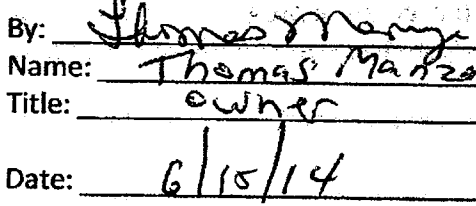 By: Thomas
Name: Thomas Manzo
Title: owner
Date: 6/15/14